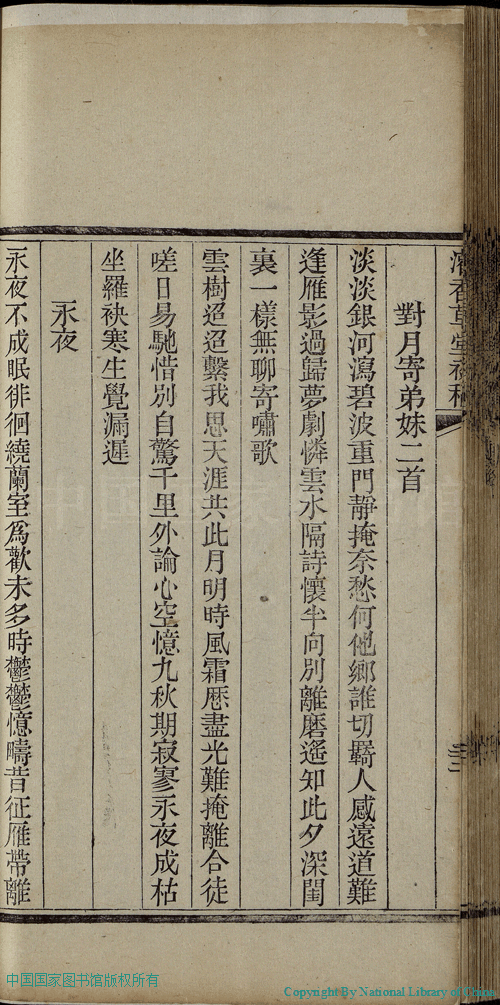 香草堂
對月寄弟妹二首
淡淡銀河瀉碧波重門靜掩奈愁何他鄉誰切羇人感遠道難
逢雁影過歸夢劇憐雲水隔詩懷半向別離磨遙知此夕深閨
裏一樣無聊寄嘯歌
雲樹迢迢繫我思天涯共此月明時風霜厯盡光難掩離合徒
嗟日易馳惜別自驚千里外論心空憶九秋期寂寥永夜成枯
坐羅袂寒生覺漏遲
永夜
永夜不成眠徘徊繞蘭室爲歡未多時鬱鬱憶疇昔征雁帶離
中国国家图书馆版权所有
Copyright By National Library of China